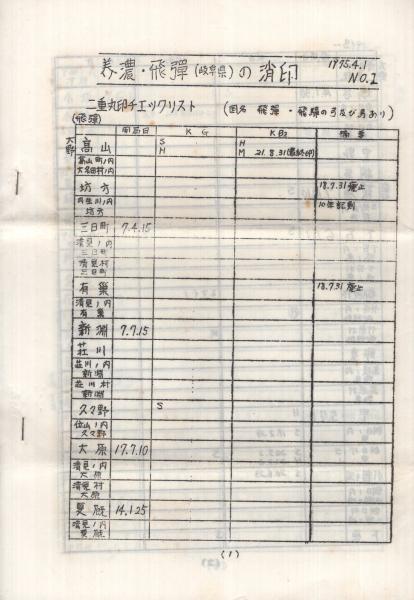 美濃・飛彈(岐阜県)の消印
1975.4.1
NO.1
二重丸印チエックリスト
(国名 飛彈・飛騨の弓及び馬あり)
(飛騨)
開局日 KG KB2 備考
大野 高山 S H
M M 21.8.31(最終印)
高山町ノ内
大名田村ノ内
坊方 18.7.31廃止
丹生川ノ内
坊方 10年記則
三日町 7.4.15
清見ノ内
三日町
清見村
三日町
有巣 18.7.31廃止
清見ノ内
有巣
新淵 7.7.15
荘川
荘川ノ内
新淵
荘川村
新淵
久々野 S
位山ノ内
久々野
大原 17.7.10
清見ノ内
大原
清見村
大原
夏厩 14.1.25
清見ノ内
夏厩
(1)